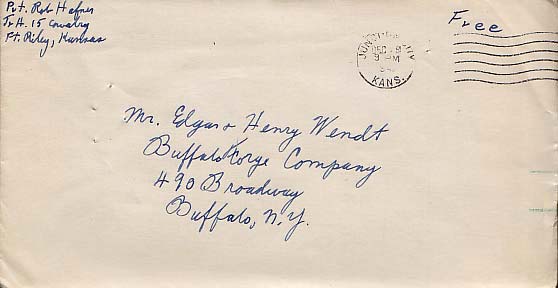 Pvt. Rob Hafner
Tr H. 15 Cavalry
Ft. Riley, Kansas
Free
JUNCTION CITY
DEC 9
9 PM
KANS.
Mr. Edgar & Henry Wendt
Buffalo Forge Company
490 Broadway
Buffalo, N.Y.